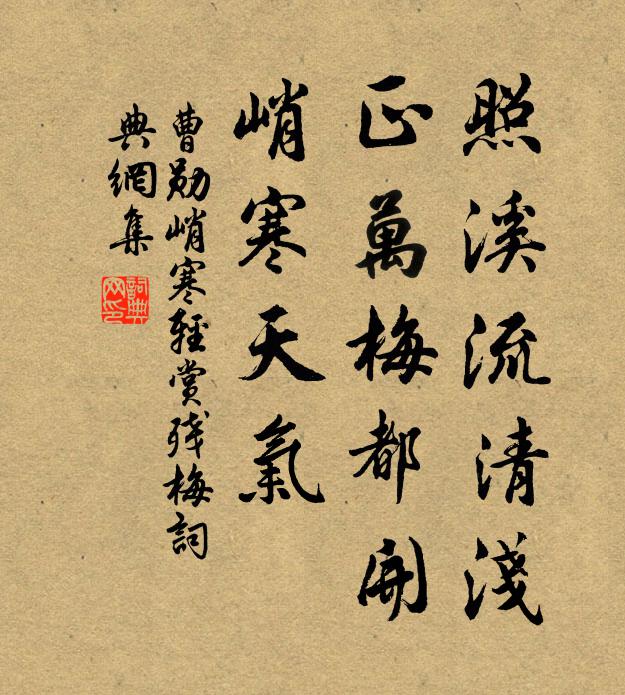 照溪流清淺
正萬梅都開
峭寒天氣
曹勛峭寒輕賞殘梅詞
典網集
詞典
网印